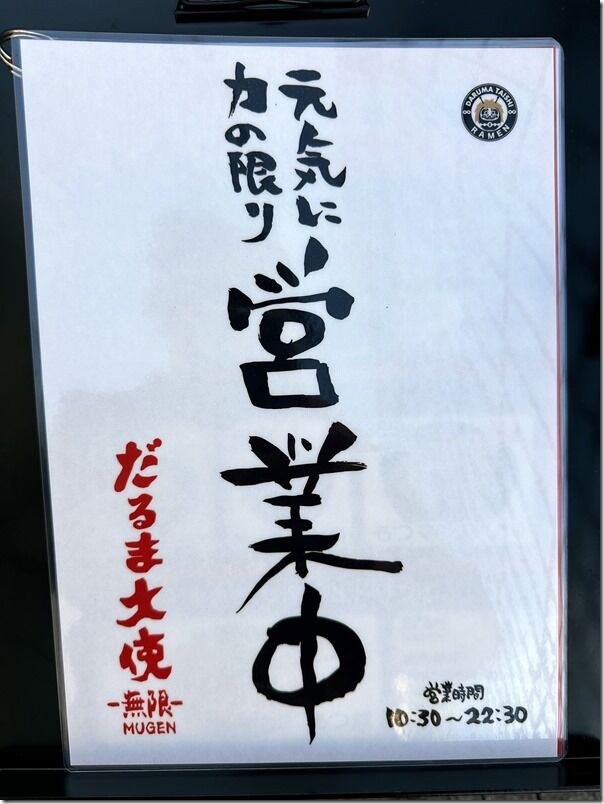 元気に
力の限り
営業中
DARUMA TAISHI
RAMEN
だるま大使
-無限-
MUGEN
営業時間
10:30～22:30